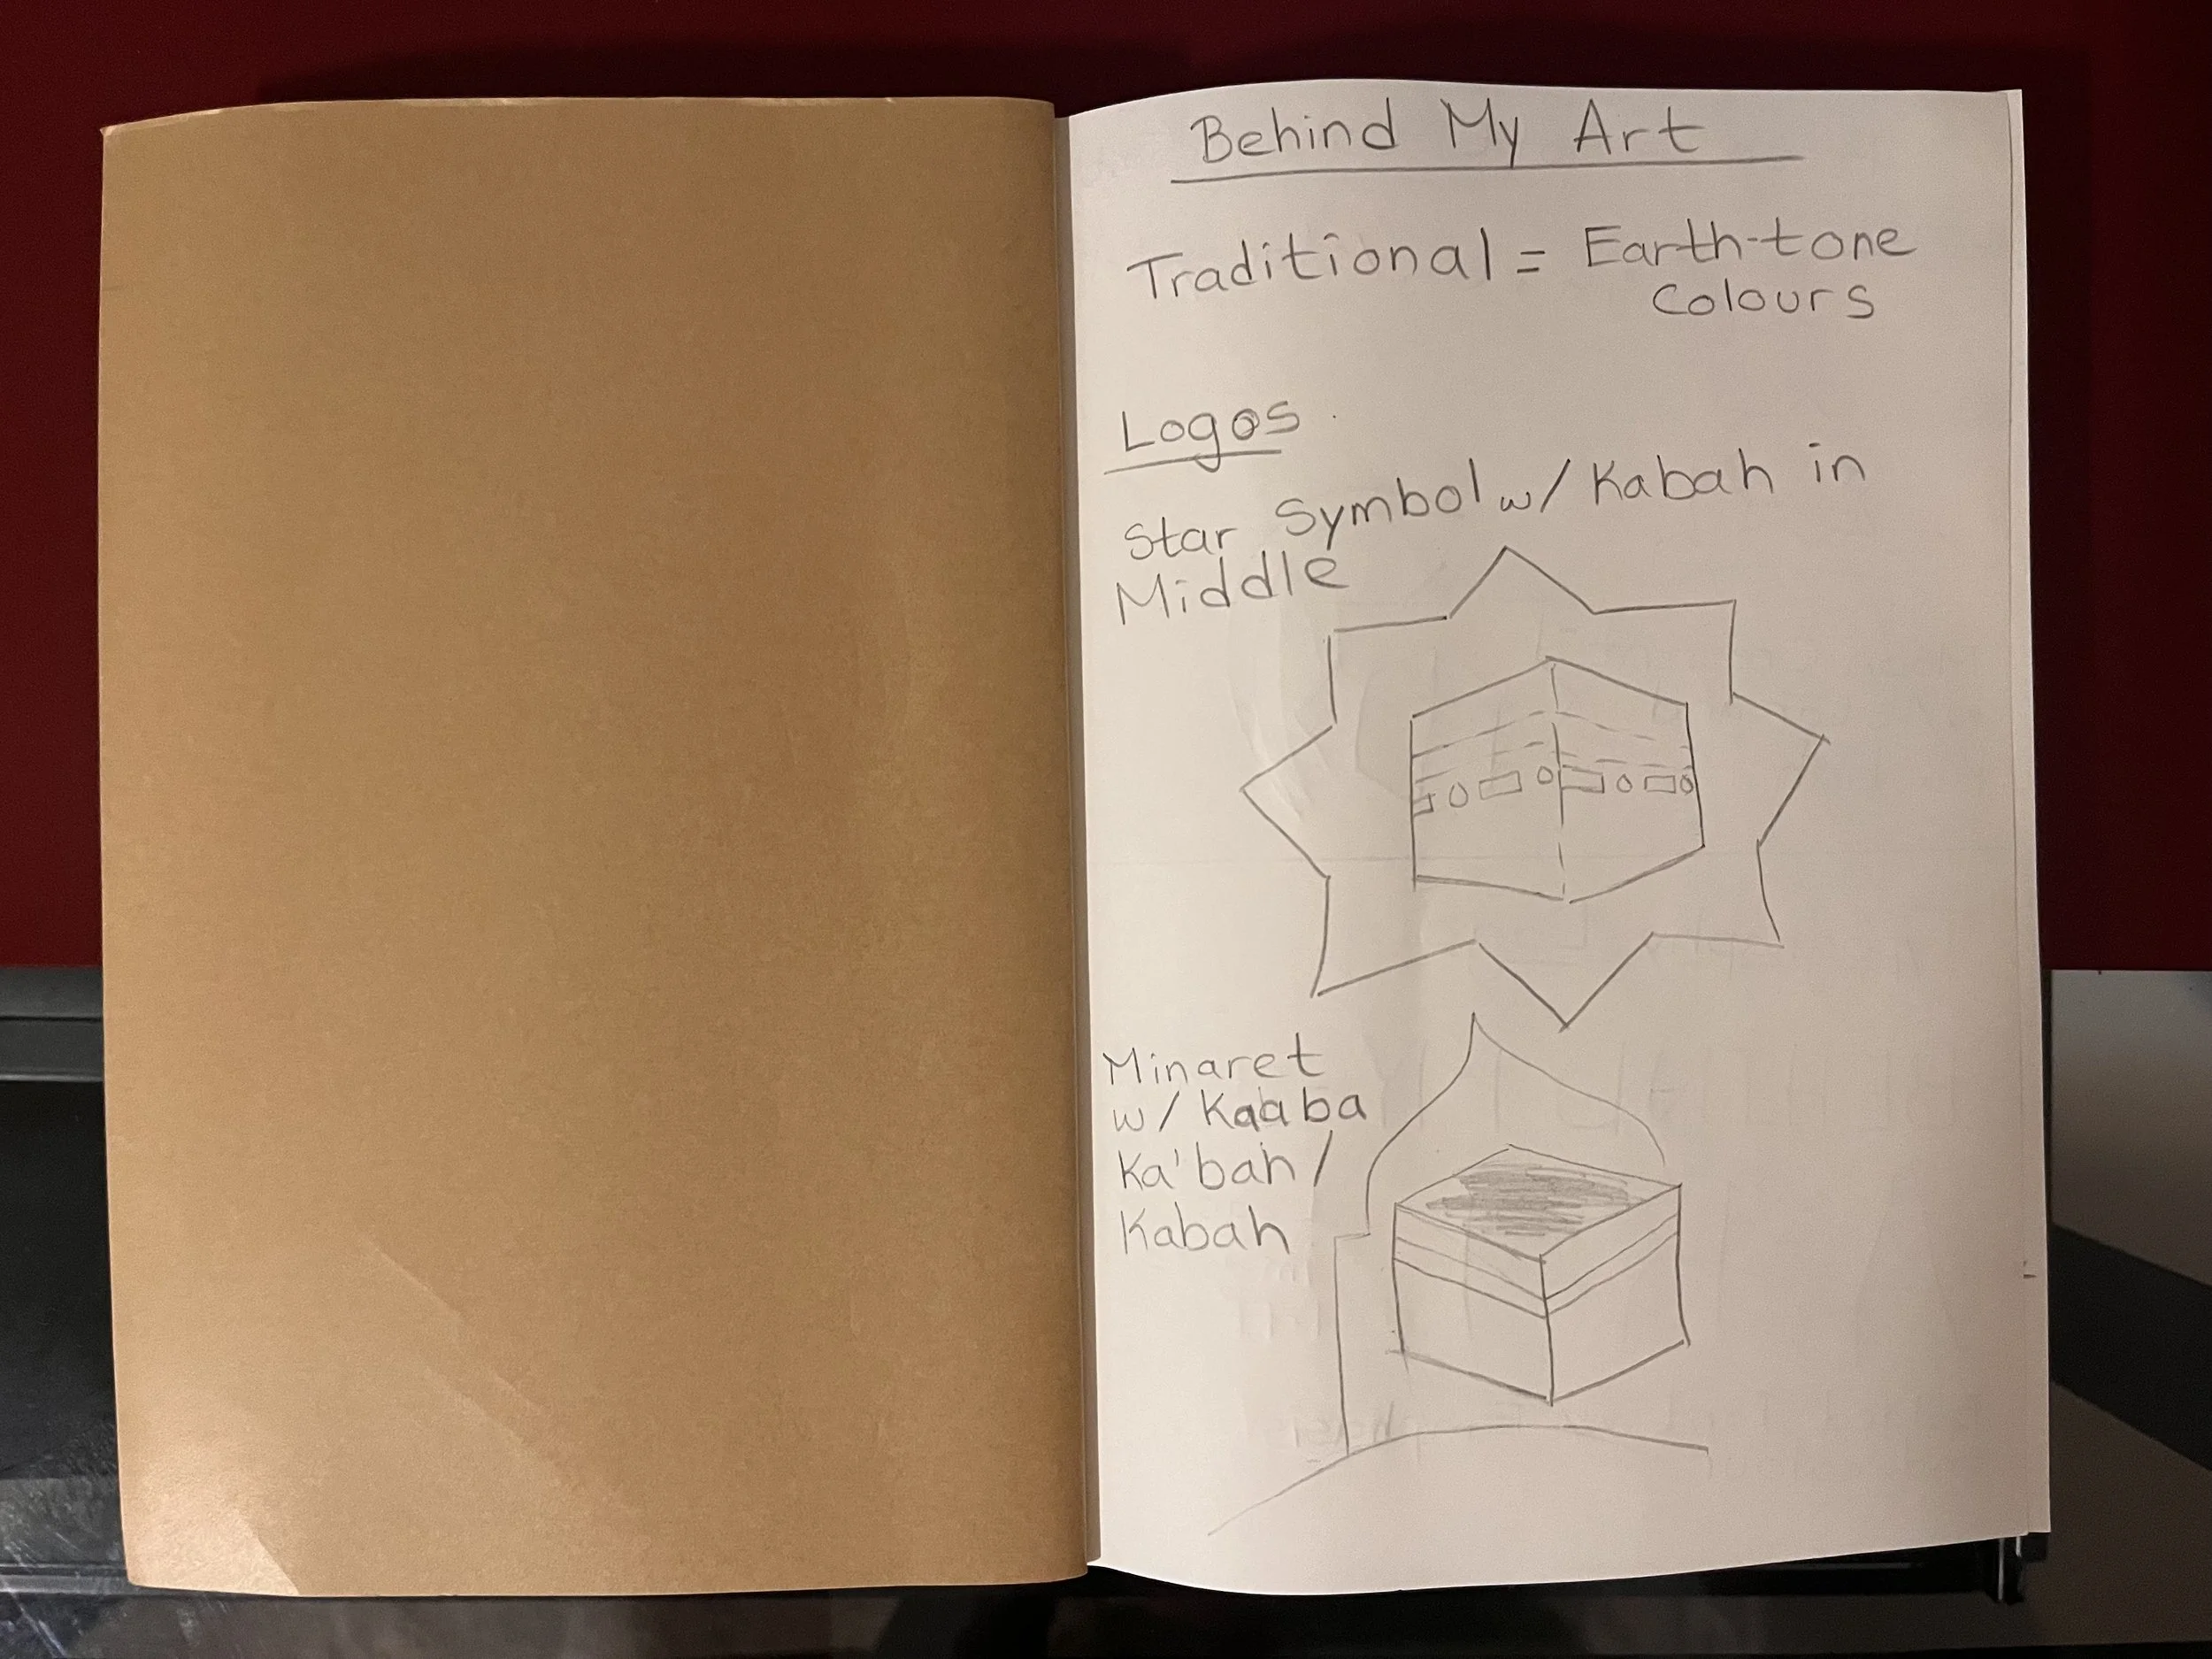 Behind My Art
Traditional = Earth-tone
Colours
Logos
Star Symbol w/ Kabah in
Middle
Minaret
w/ Kaaba
Ka'bah /
Kabah